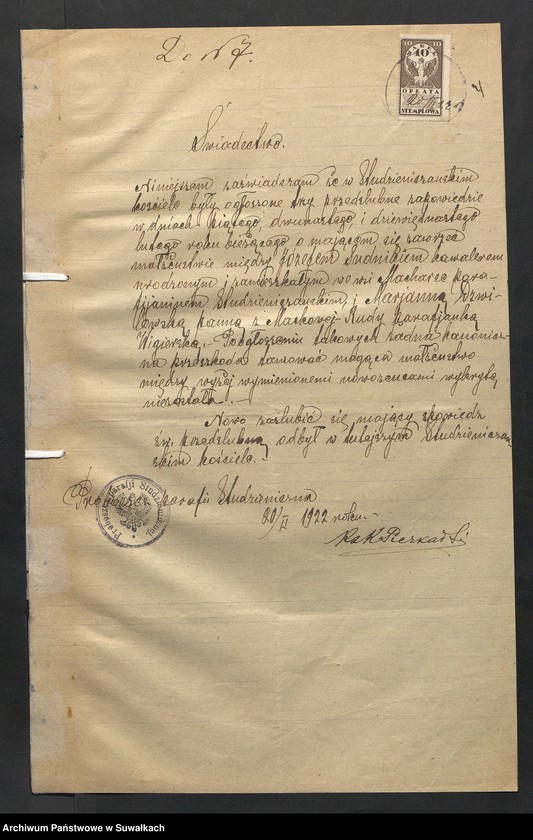 Do N 7.
10 10
MAREK
10
OPŁATA
STEMPLOWA
4
Świadectwo.
Niniejszem zaświadczam że w Studzieniczańskim
kościele były ogłoszone trzy przedślubne zapowiedzie
w dniach piątego, dwunastego, i dziewiętnastego
lutego roku bieżącego o mającym się zawrzeć
małżeństwie między Józefem Sudnikiem kawalerem
urodzonym i zamieszkałym we wsi Macharce para-
fijaninem Studzieniczańskim, i Marjanną Dzwi-
lewską panną z Maćkowej Rudy parafjanką
Wigierską. Po ogłoszeniu takowych żadna kanonicz-
na przeszkoda tamować mogąca małżeństwo
między wyżej wymienionemi nowożeńcami wykrytą
niezostała. —
Nowo zaślubić się mający spowiedź
św. przedślubną odbył w tutejszym Studzieniczań-
skim kościele. —
Proboszcz Parafii Studzieniczna
20/II 1922 roku. -
Proboszcz parafji Studzienicznej
Archiwum Państwowe w Suwałkach